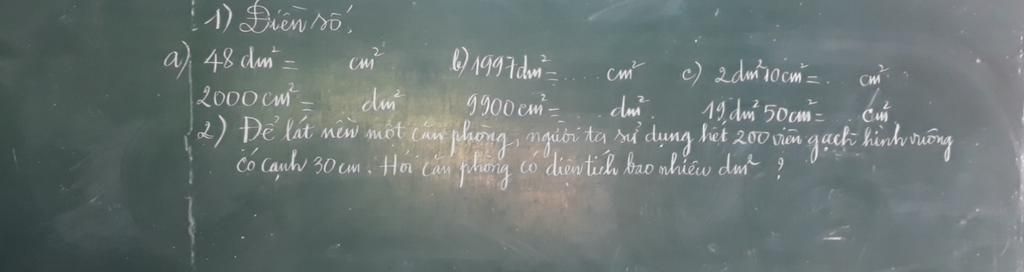 1) Điền số:
a) 48 dm² = cm² b) 1997dm² = ..... cm² c) 2dm²10cm² = .. cm²
2000cm² = dm² 9900cm² = dm² 19dm²50cm² = cm²
2) Để lát nền một căn phòng, người ta sử dụng hết 200 viên gạch hình vuông
có cạnh 30 cm. Hỏi căn phòng có diện tích bao nhiêu dm² ?